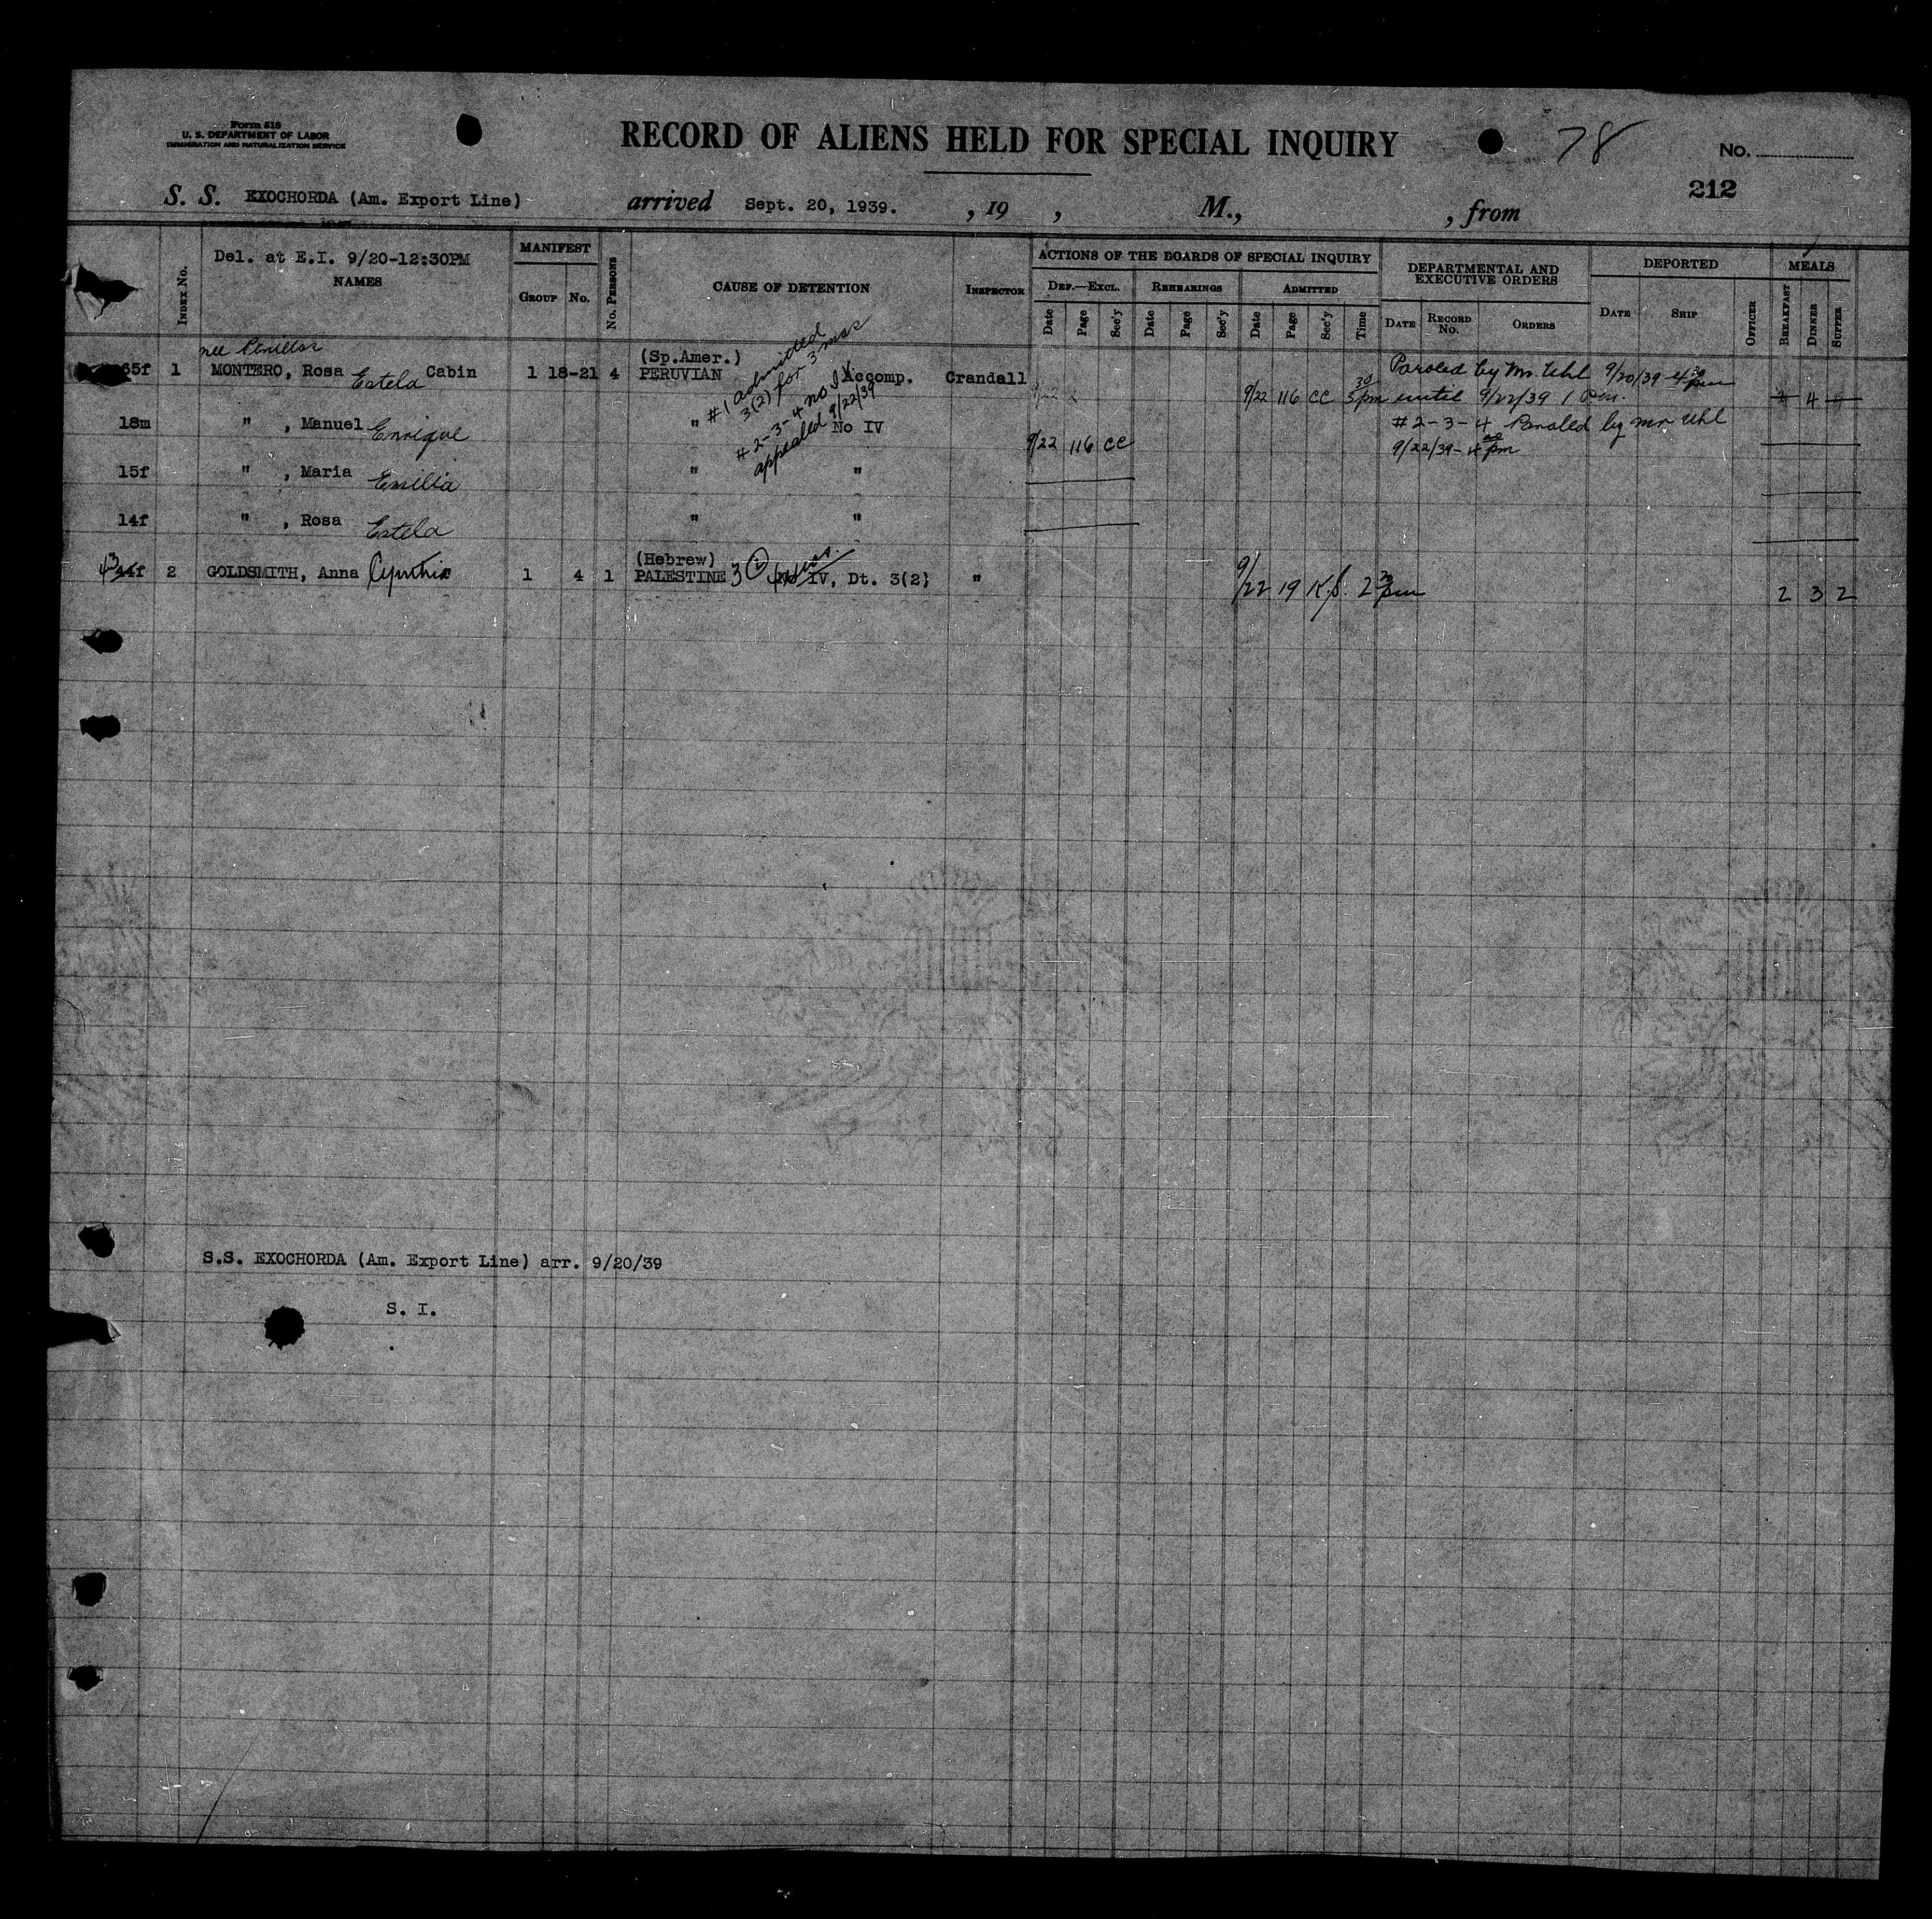 Form 518
U. S. DEPARTMENT OF LABOR
IMMIGRATION AND NATURALIZATION SERVICE
RECORD OF ALIENS HELD FOR SPECIAL INQUIRY
78
No.
212
S. S. EXOCHORDA (Am. Export Line) arrived Sept. 20, 1939. , 19 , M., , from
Del. at E.I. 9/20-12:30PM
Index No. NAMES MANIFEST GROUP No. No. PERSONS CAUSE OF DETENTION INSPECTOR ACTIONS OF THE BOARDS OF SPECIAL INQUIRY DEF.—EXCL. REHEARINGS ADMITTED DEPARTMENTAL AND EXECUTIVE ORDERS DEPORTED MEALS
Date Page Sec'y Date Page Sec'y Date Page Sec'y Time DATE RECORD No. ORDERS DATE SHIP OFFICER BREAKFAST DINNER SUPPER
nee
1 MONTERO, Rosa Estela Cabin 1 18-21 4 (Sp.Amer.) PERUVIAN Accomp. Crandall 9/22 116 CC 3 30 pm Paroled by Mr. Uhl 9/20/39 4 30 pm until 9/22/39 1 pm. 4
#1 admitted 3(2) for 3 mos
#2-3-4 no IV
appealed 9/22/39
18m " , Manuel Enrique " No IV 9/22 116 CC #2-3-4 Paroled by Mr Uhl
9/22/39-4 pm
15f " , Maria Emilia " "
14f " , Rosa Estela " "
43 44f 2 GOLDSMITH, Anna Cynthia 1 4 1 (Hebrew) PALESTINE IV, Dt. 3(2) " 9/22 19 K.S. 2 30 pm 2 3 2
S.S. EXOCHORDA (Am. Export Line) arr. 9/20/39
S. I.